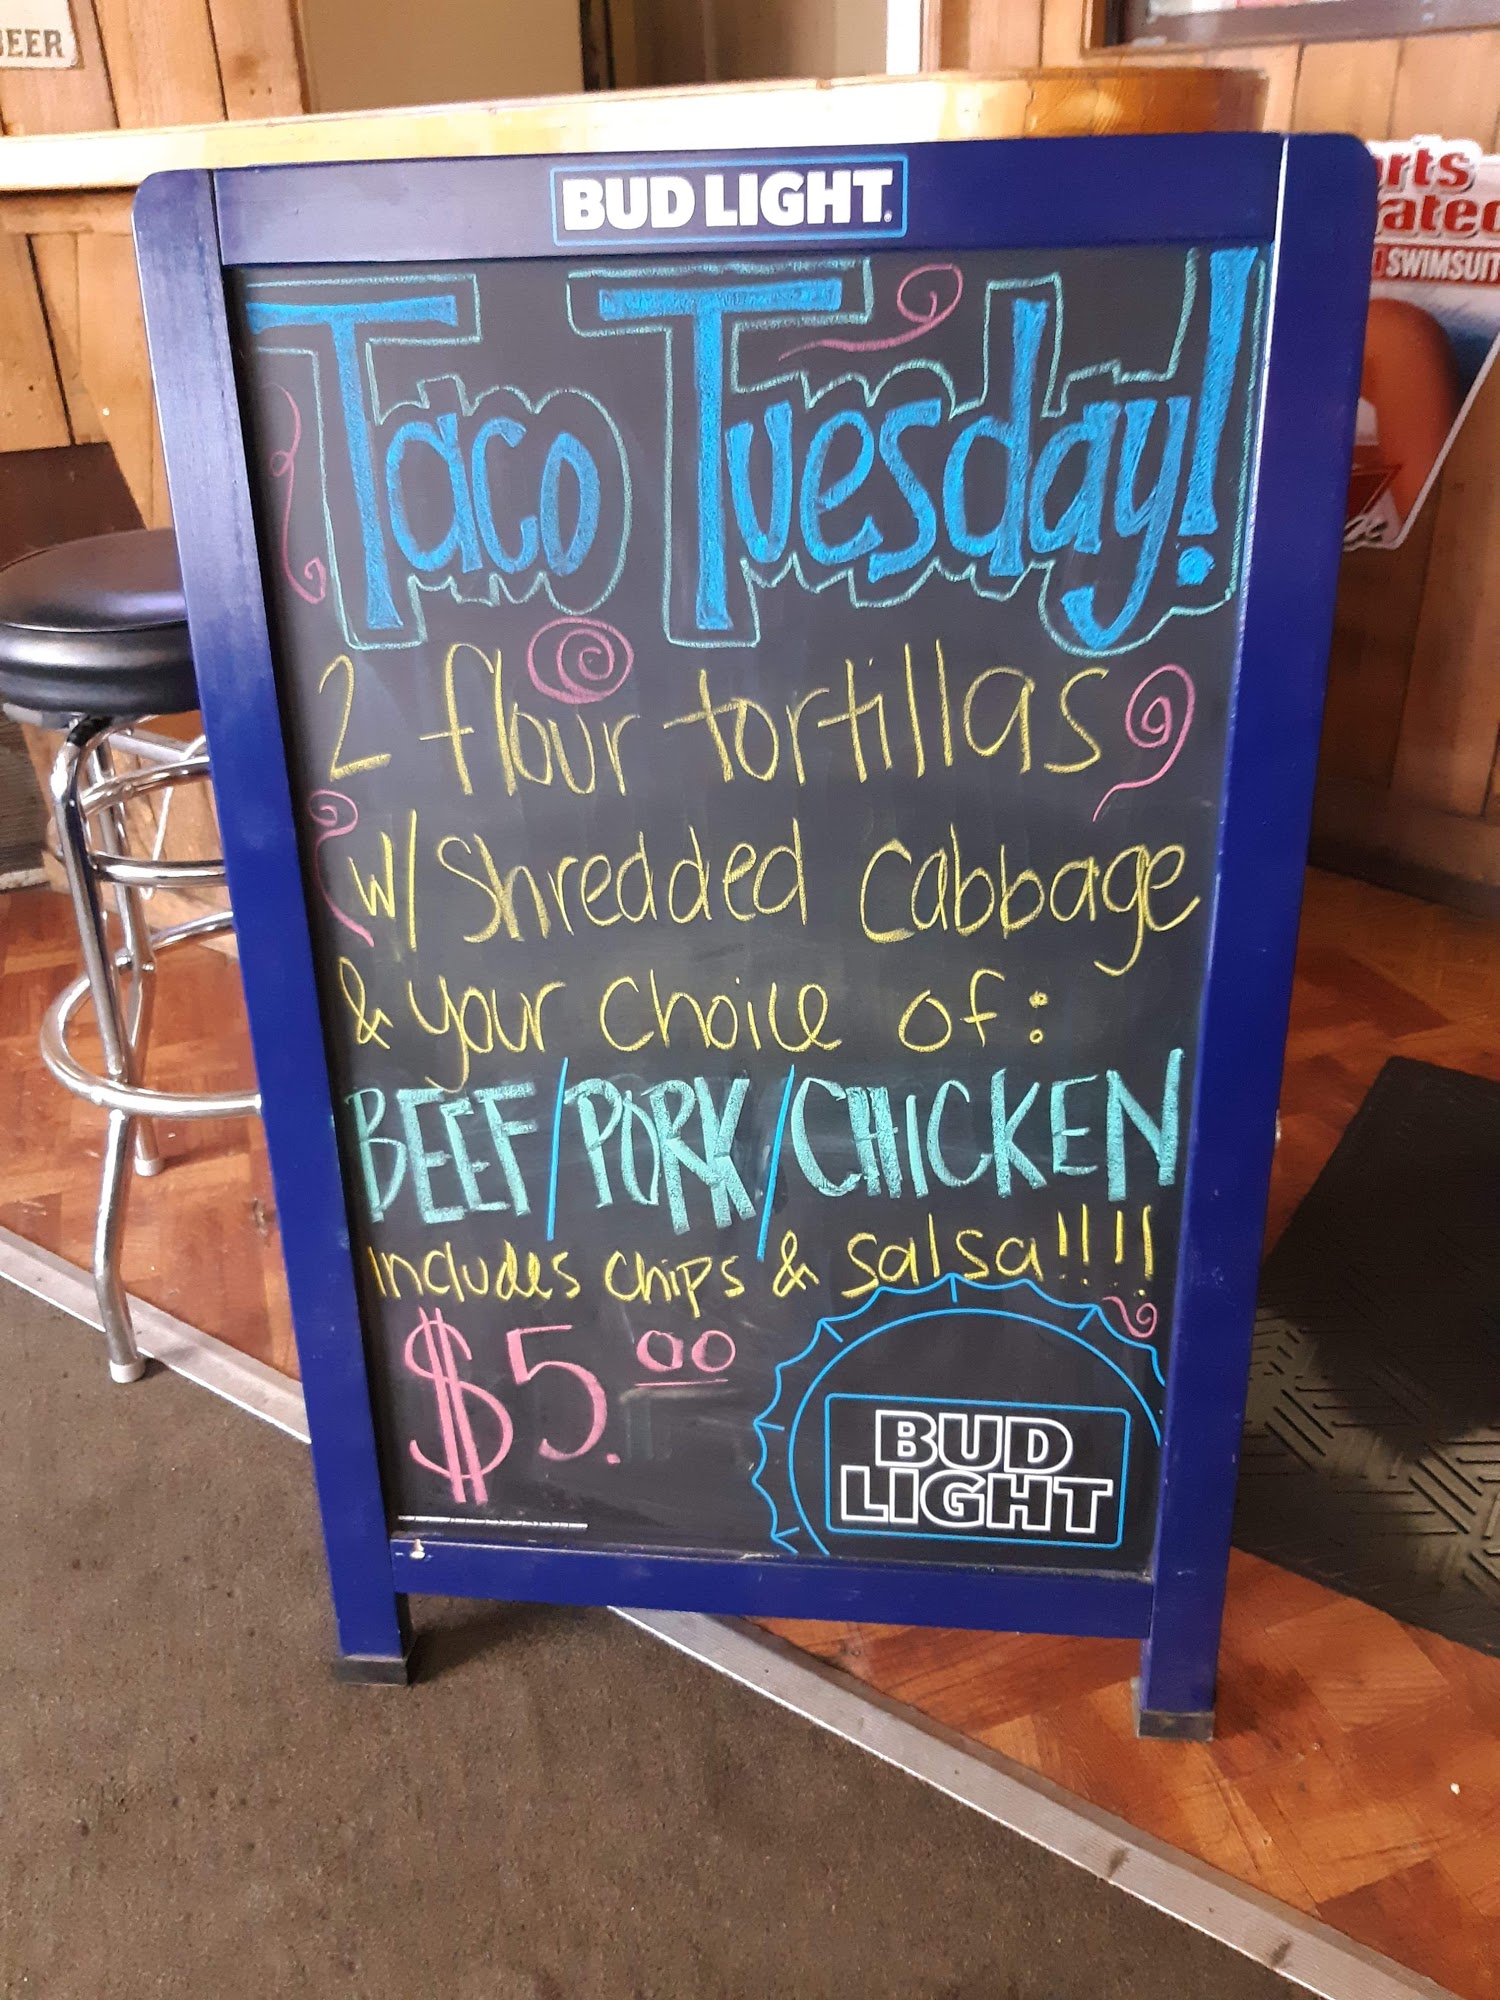 BEER
BUD LIGHT.
Taco Tuesday!
2 flour tortillas
w/ Shredded cabbage
& your choice of:
BEEF/PORK/CHICKEN
Includes chips & salsa!!!!
$5.00
BUD
LIGHT
orts
rated
SWIMSUIT